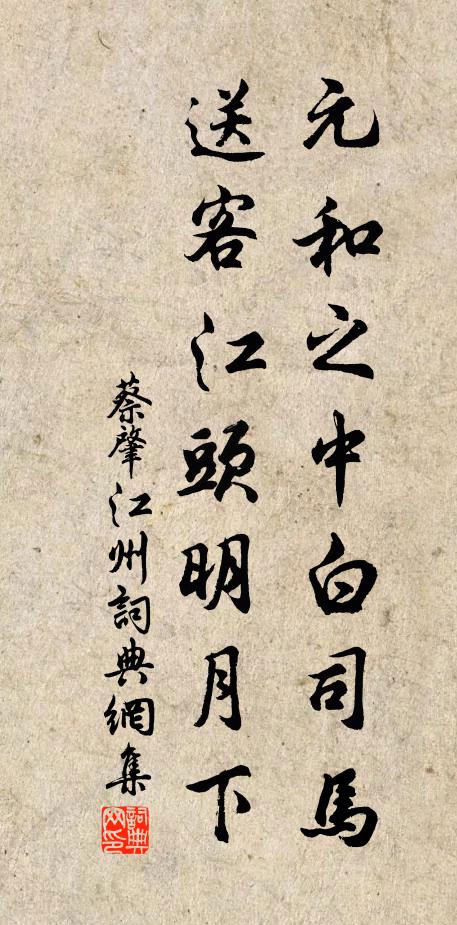 元和之中白司馬
送客江頭明月下
蔡肇江州詞典網集
詞典网印